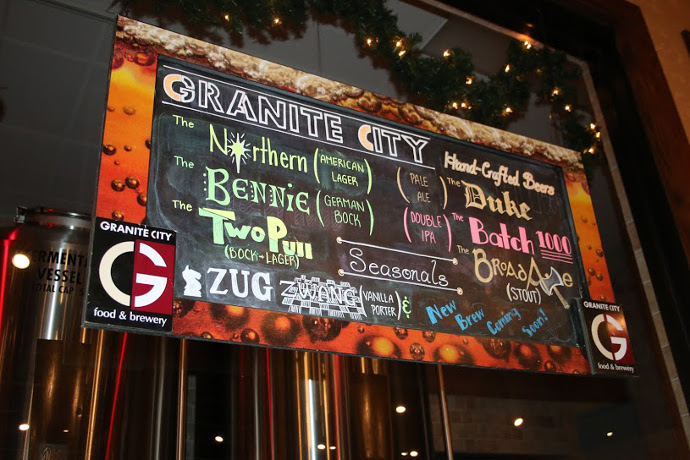 GRANITE CITY
Hand-Crafted Beers
The Northern (AMERICAN LAGER)
The BENNIE (GERMAN BOCK)
The Two Pull (BOCK+LAGER)
(PALE ALE) The Duke
(DOUBLE IPA) The Batch 1000
The BROADAXE (STOUT)
Seasonals
ZUG ZWANG (VANILLA PORTER) &
New Brew Coming Soon!
GRANITE CITY
G
food & brewery
GRANITE CITY
G
food & brewery
FERMENTER
VESSEL
TOTAL CAP